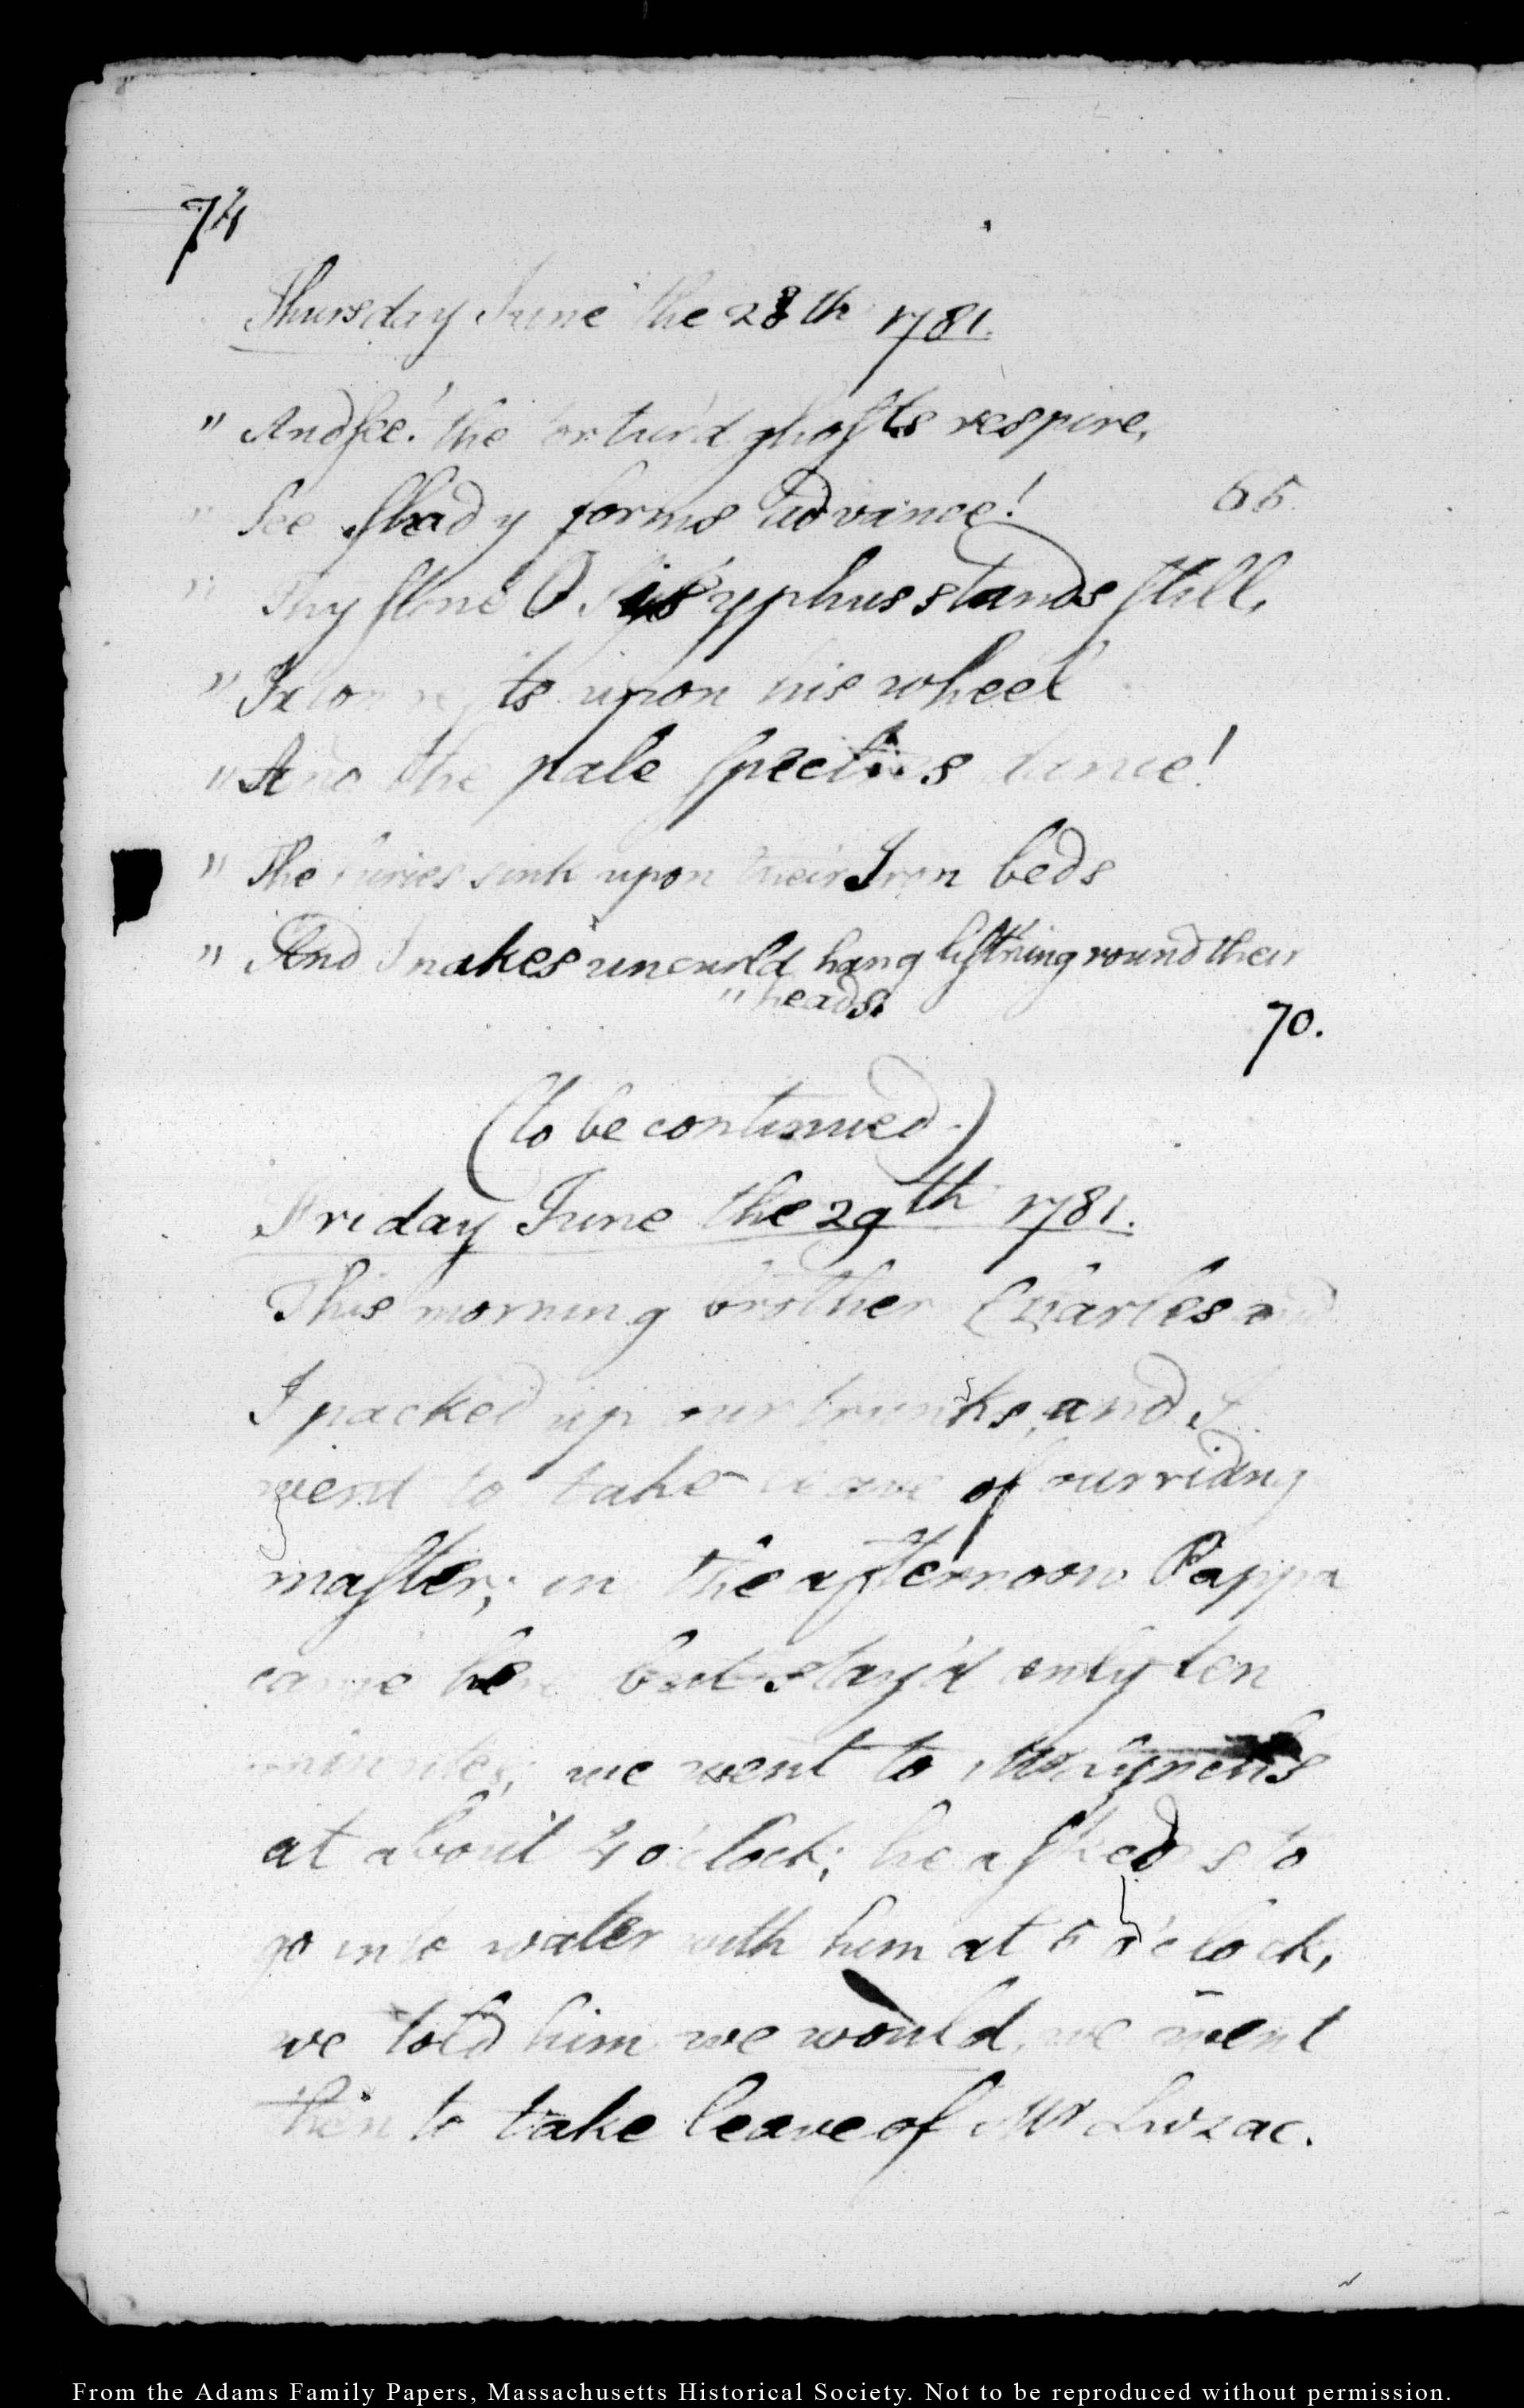 74
Thursday June the 28th 1781.
" And see! the tortur'd ghosts respire,
" See shady forms advance! 65.
" Thy stone O Sisyphus stands still,
" Ixion rests upon his wheel
" And the pale spectres dance!
" The furies sink upon their Iron beds
" And Snakes uncurld hang list'ning round their
" heads.
70.
(to be continued.)
Friday June the 29th 1781.
This morning brother Charles and
I packed up our trunks, and I
went to take leave of our riding
master; in the afternoon Pappa
came here but stay'd only ten
minutes; we went to Mr Lynch's
at about 4 o'clock; he asked us to
go into water with him at 5 o'clock,
we told him we would, we went
then to take leave of Mr Luzac.
From the Adams Family Papers, Massachusetts Historical Society. Not to be reproduced without permission.